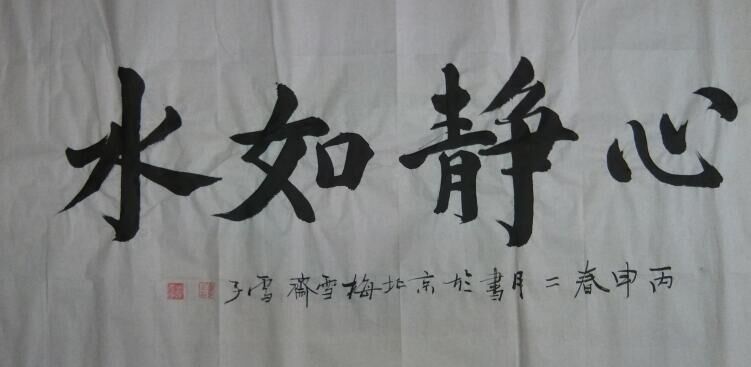 心静如水
丙申春二月書於京北梅雪齋雪子